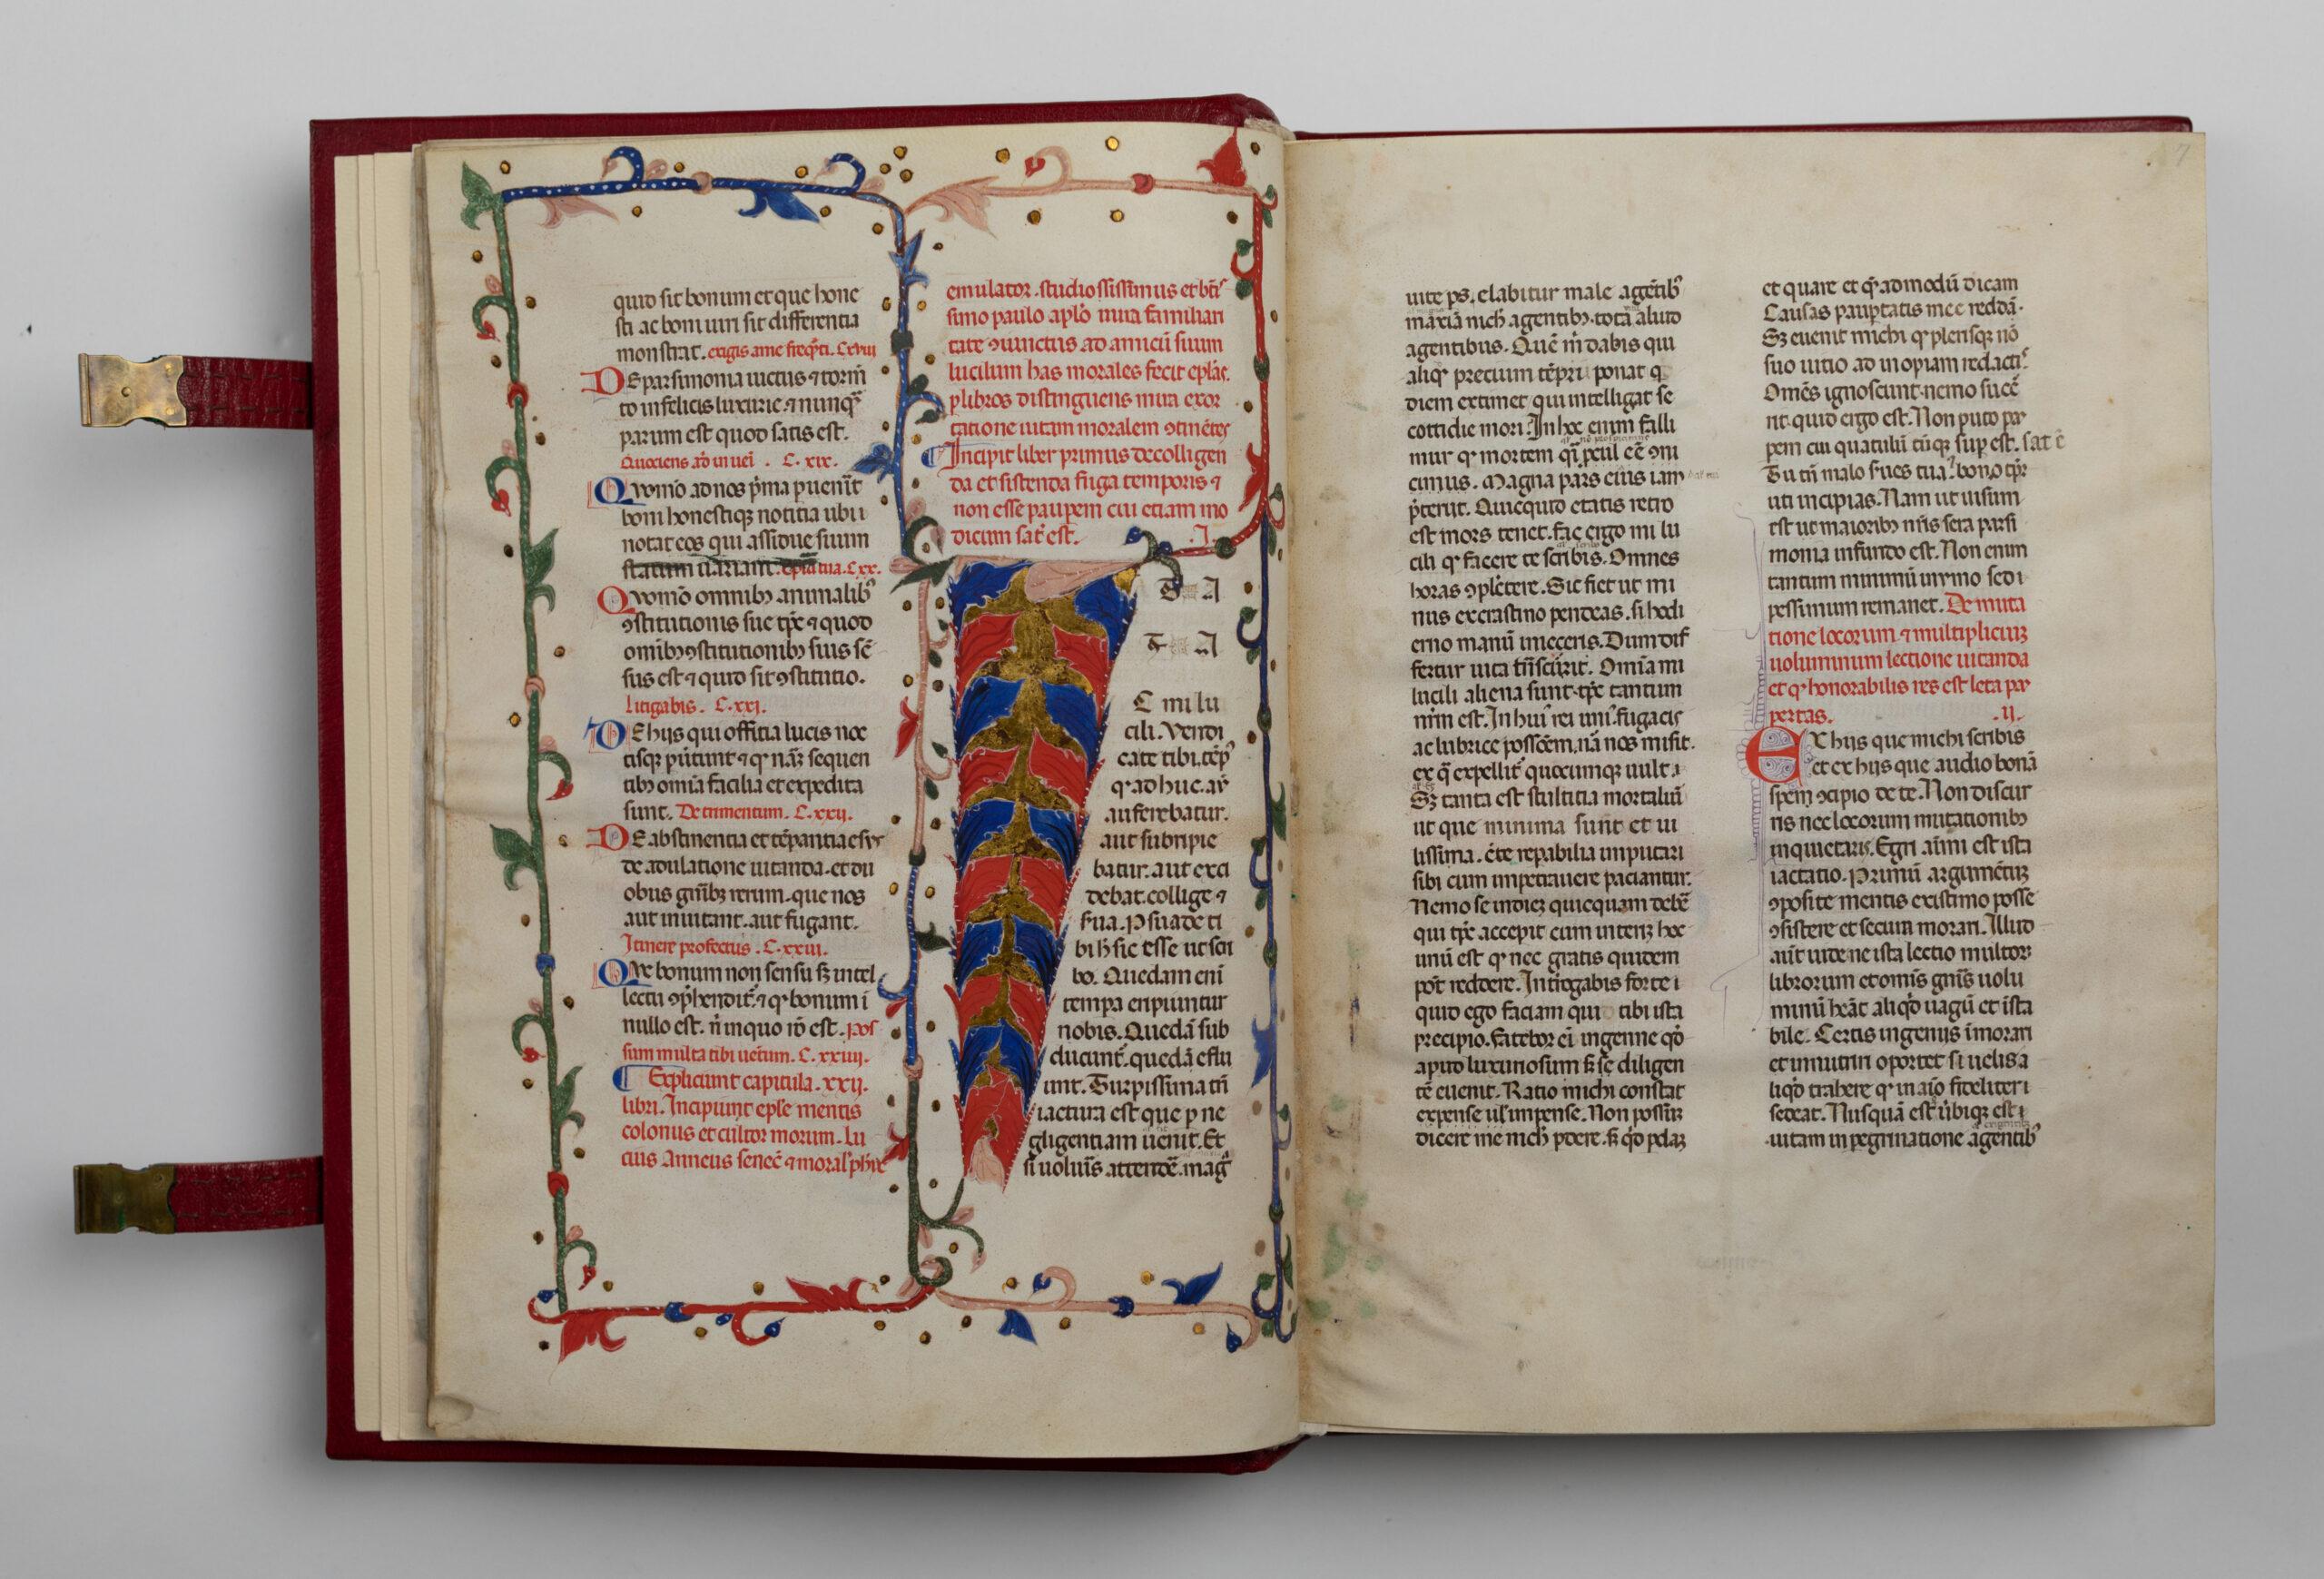 quid sit bonum et que hone
sti ac boni uiri sit differentia
monstrat. exigis a me freq̃ti. C.xviii
De parsimonia uictus ⁊ torm̃
to infelicis luxurie ⁊ nunq̃
parum est quod satis est.
C. xix.
Quomõ ad nos p̃ma puenit̃
boni honestiq; notitia ubi
notat eos qui assidue suum
statum uariant. ep̃la tua. C.xx.
Quomõ omnibꝫ animalibꝰ
ꝯstitutionis sue tp̃e ⁊ quod
omibꝫ ꝯstitutionibꝫ suis sẽ
sus est ⁊ quid sit ꝯstitutio.
litigabis. C.xxi.
De hijs qui offitia lucis noc
tisq; ⁊ sequen
tibꝫ omia facilia et expedita
sunt. Detrimentum. C.xxii.
De abstinentia et tẽpantia
de adulatione uitanda. et du
obus rerum. que nos
aut inuitant. aut fugant.
Itinere profectus. C.xxiii.
Qve bonum non sensu sꝫ intel
lectu ꝯp̃hendit̃ ⁊ bonum ĩ
nullo est. ñ in quo rõ est. pos
sum multa tibi ueterum. C.xxiiii.
¶ Expliciunt capitula. xxii.
libri. Incipiunt ep̃le mentis
colonus et cultor morum. lu
cius Anneus senec̃ ⁊ moral' ph̃ie
emulator. studiosissimus et bt̃i
simo paulo apl̃o mira familiari
tate ꝯiunctus ad amicũ suum
lucilum has morales fecit ep̃las.
ꝑ libros distinguens mira exor
tatione uitam moralem ꝯtinẽtes
¶ Incipit liber primus de colligen
da et sistenda fuga temporis ⁊
non esse paupem cui etiam mo
dicum sat̃ est. .I.
C mi lu
cili. Vendi
cate tibi. tẽpꝰ
qꝰ ad huc. aũ
auferebatur.
aut subripie
batur. aut exci
debat. collige ⁊
sua. Psuade ti
bi h̃ sic esse ut sci
bo. Quedam eni
tempa eripiuntur
nobis. Quedã sub
ducunt̃. quedã eflu
unt. Turpissima tñ
iactura est que p ne
gligentiam uenit. Et
si uoluĩs attendẽ. mag̃
uite ps. elabitur male agẽtibꝰ
maxĩa nich̃ agentibꝫ. tota aliud
agentibus. Quẽ m̃ dabis qui
aliqꝰ precium tẽpri ponat q̃
diem extimet qui intelligat se
cottidie mori? In hoc enim falli
mur qꝰ mortem qĩ pcul eẽ ꝯni
cimus. Magna pars eius iam
p̃teriit. Quicquid etatis retro
est mors tenet. fac ergo mi lu
cili qꝰ facere te scribis. Omnes
horas ꝯplẽtere. Sic fiet ut mi
nus ex crastino pendeas. si hodi
erno manũ inieceris. Dum dif
fertur uita tñscurrit. Omia mi
lucili aliena sunt. tp̃e tantum
nr̃m est. In huiꝰ rei uniꝰ fugacis
ac lubrice possõem. nã nos misit.
ex q̃ expellit̃ quocumq; uult.
Sꝫ tanta est stultitia mortaliũ
ut que minima sunt et ui
lissima. cẽte repabilia imputari
sibi cum impetrauere paciantur.
Nemo se iudicꝫ quicquam debẽ
qui tp̃e accepit cum interꝫ hoc
unũ est qꝰ nec gratis quidem
põt reddere. Int̃rogabis forte
quid ego faciam qui tibi ista
precipio. fatebor ei ingenue qd̃
apud luxuriosum sꝫ diligen
tẽ euenit. Ratio michi constat
expense ul' impense. Non possũ
dicere me nich̃ pdere. sꝫ qd̃ pdaꝫ
et quare et q̃ admodũ dicam
Causas pauptatis mee reddã.
Sꝫ euenit michi qꝰ plerisq; nõ
suo uitio ad inopiam redactiꝰ
Omẽs ignoscunt. nemo sucẽ
rit. quid ergo est. Non puto pau
pem cui quatulũ cũq; supest. sat ẽ
Tu tñ malo sues tua. bono tp̃e
uti incipias. Nam ut uisum
est ut maioribꝫ nr̃is sera parsi
monia in fundo est. Non enim
tantum minimũ in ymo sed i
pessimum remanet. De muta
tione locorum ⁊ multiplicium
uoluminum lectione uitanda
et qꝰ honorabilis res est leta pau
pertas. .ij.
Ex hijs que michi scribis
et ex hijs que audio bonã
spem ꝯcipio de te. Non discur
ris nec locorum mutationibꝫ
inquietaris. Egri aĩmi est ista
iactatio. Primũ argumẽtum
ꝯposite mentis existimo posse
ꝯsistere et secum morari. Illud
aũt uide ne ista lectio multoꝝ
librorum et omis gñis uolu
minũ heãt aliqd̃ uagũ et ista
bile. Certis ingeniis ĩmorari
et innutriri oportet si uelis a
liqd̃ trahere qꝰ in aĩo fideliter
sedeat. Nusquã est ubiq; est
uitam in pegrinatione agentibꝰ